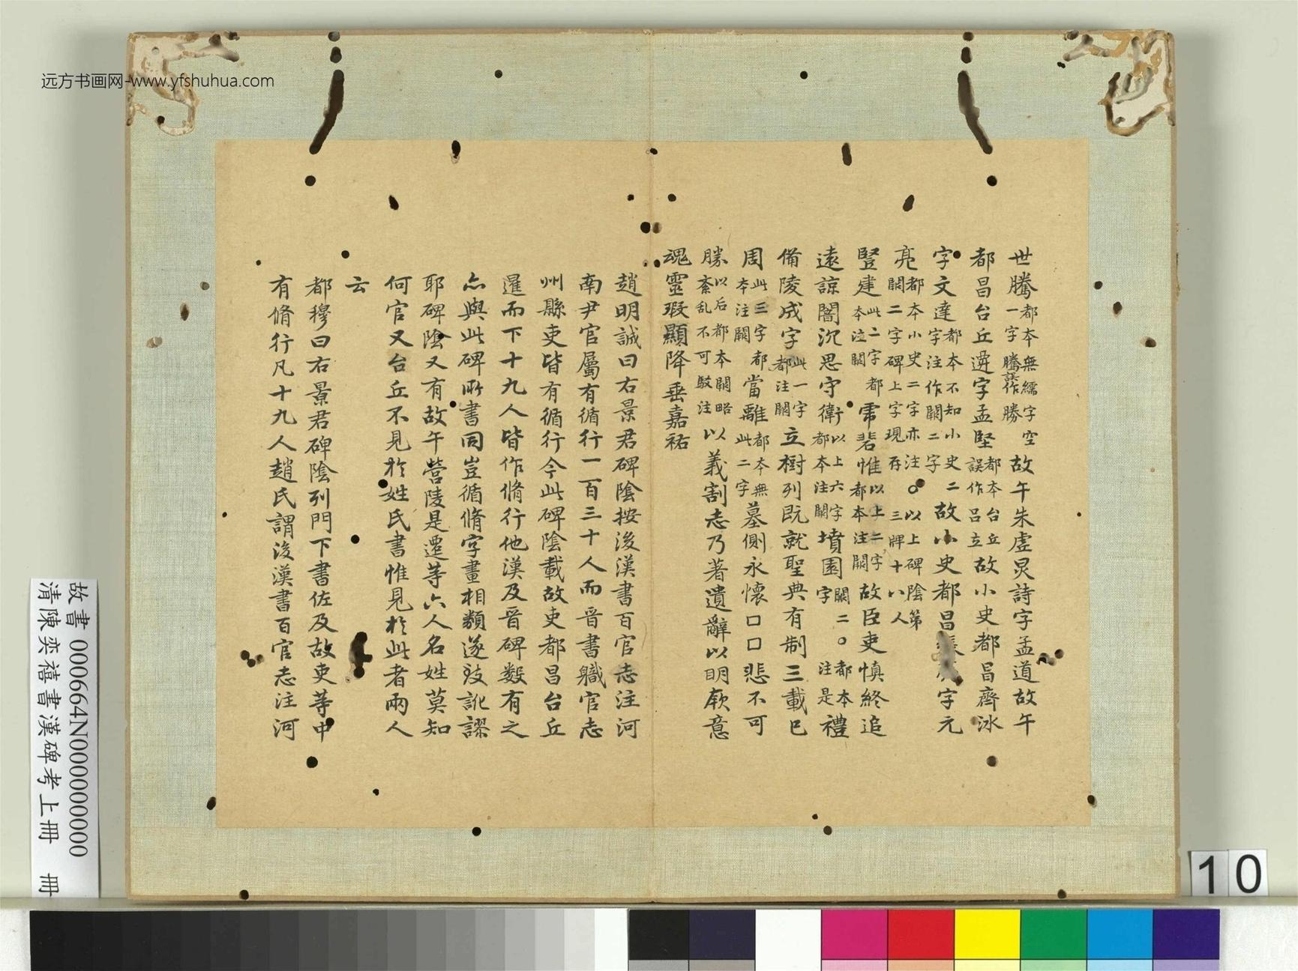 远方书画网-www.yfshuhua.com
世騰都本無繻字空一字騰誤作勝故午朱虛炅詩字孟道故午
都昌台丘遷字孟堅都本台丘誤作呂立故小史都昌齊冰
字文達都本不知小史二字注作闕二字故小史都昌張字元
亮都本小史二字亦注闕二字碑上字現存○以上碑陰第三牌十八人
豎建此二字都本注闕霈碧惟以上二字都本注闕故臣吏慎終追
遠諒闇沉思守衛以上六字都本注闕墳園闕二○都本字注是禮
俻陵成字此一字都注闕立樹列既就聖典有制三載已
周此三字都本注闕當離都本無此二字墓側永懷口口悲不可
勝以后都本闕略紊乱不可駁注以義割志乃著遺辭以明厥意
魂靈瑕顯降垂嘉祐
趙明誠曰右景君碑陰按後漢書百官志注河
南尹官屬有循行一百三十人而晉書職官志
州縣吏皆有循行今此碑陰載故吏都昌台丘
暹而下十九人皆作脩行他漢及晉碑數有之
亦與此碑所書同豈循脩字畫相類遂致訛謬
耶碑陰又有故午營陵是遷等六人名姓莫知
何官又台丘不見於姓氏書惟見於此者兩人
云
都穆曰右景君碑陰列門下書佐及故吏等中
有脩行凡十九人趙氏謂後漢書百官志注河
故書 000664N000000000
清陳奕禧書漢碑考上冊 冊
10